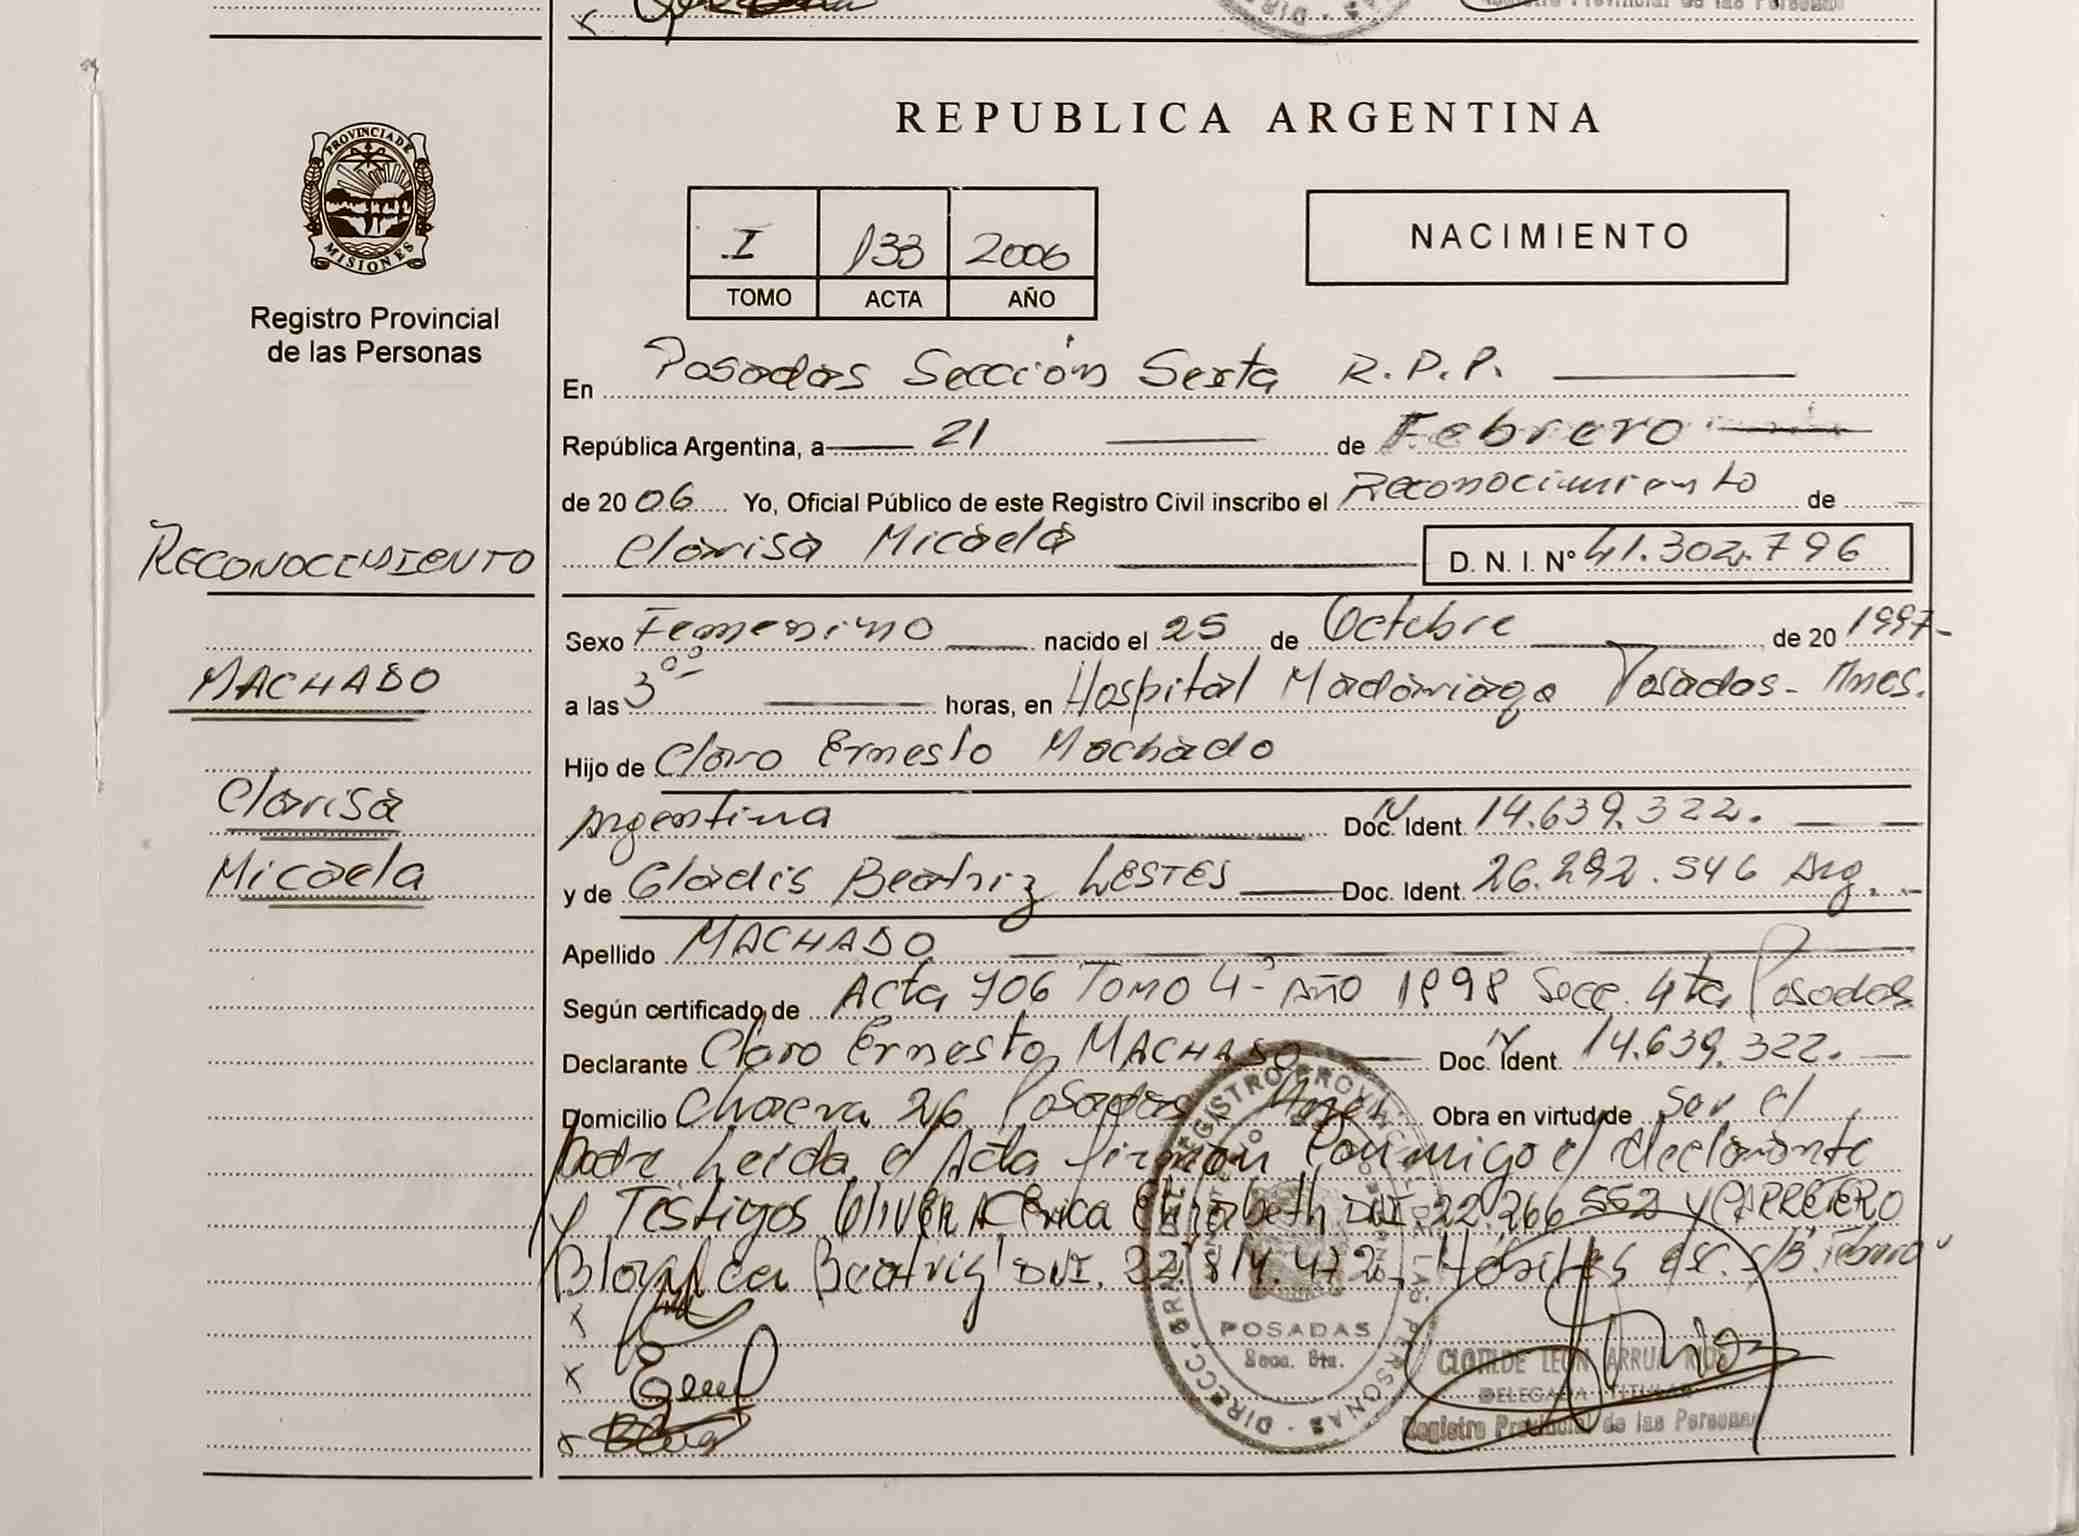 Registro Provincial de las Personas
PROVINCIA DE
MISIONES
Registro Provincial
de las Personas
RECONOCIMIENTO
MACHADO
Clarisa
Micaela
REPUBLICA ARGENTINA
I 133 2006
TOMO ACTA AÑO
NACIMIENTO
En Posadas Sección Sexta R.P.P.
República Argentina, a 21 de Febrero
de 20 06 Yo, Oficial Público de este Registro Civil inscribo el Reconocimiento de
Clarisa Micaela D. N. I. N° 41.302.796
Sexo Femenino nacido el 25 de Octubre de 20 1997
a las 3 00 horas, en Hospital Madariaga Posadas - Mnes.
Hijo de Claro Ernesto Machado
Argentina Doc. Ident. 14.639.322.
y de Gladis Beatriz LESTES Doc. Ident. 26.292.546 Arg.
Apellido MACHADO
Según certificado de Acta 706 Tomo 4° Año 1998 Secc. 4ta Posadas
Declarante Claro Ernesto MACHADO Doc. Ident. 14.639.322.
Domicilio Chacra 246 Posadas Mnes. Obra en virtud de ser el
padre Leida el Acta firman conmigo el declarante
y Testigos Erica Elizabeth DNI. 22.266.552 y CARRETERO
Beatriz DNI.
DIRECC. GRAL. DEL REGISTRO PROVINCIAL DE LAS PERSONAS
POSADAS
Secc. 6ta.
CLOTILDE LEON ARRUA RIOS
DELEGADA TITULAR
Registro Provincial de las Personas